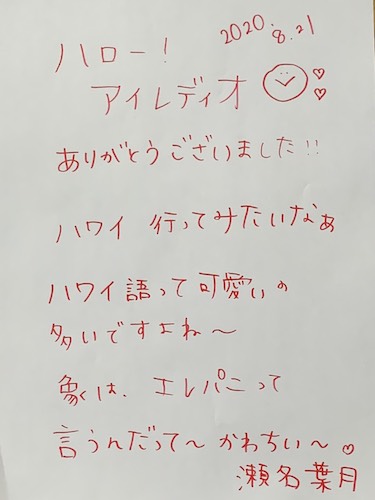 2020.8.21
ハロー!
アイレディオ
ありがとうございました!!
ハワイ 行ってみたいなぁ
ハワイ語って可愛いの
多いですよね〜
象くは、エレパニって
言うんだって〜かわちい〜♡
瀬名葉月